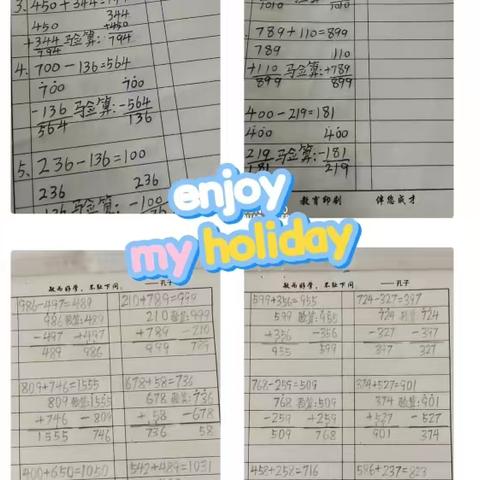 3. 450+344=794
450
344
+344 马金算:
+450
794
794
4. 700-136=564
700
700
-136 马金算: -564
564
136
5. 236-136=100
236
236
马金算: -100
1010
1010
789+110=899
789
110
+110 马金算: +789
899
899
400-219=181
400
400
219 马金算: -181
181
219
教育印刷 伴您成才
enjoy
my holiday
敏而好学,不耻下问。 ——孔子
986-497=489
210+789=999
986 验算: 489
210 验算: 999
-497 +497
+789 -210
489 986
999 789
809+746=1555
678+58=736
809 验算: 1555
678 验算: 736
+746 -809
+58 -678
1555 746
736 58
400+650=1050
542+489=1031
敏而好学,不耻下问。 ——孔子
599+356=955
724-327=397
599 验算: 955
724 验算: 724
+356 -356
-327 -397
955 599
397 327
768-259=509
374+527=901
768 验算: 509
374 验算: 901
-259 +259
+527 -527
509 768
901 374
458+258=716
586+237=823